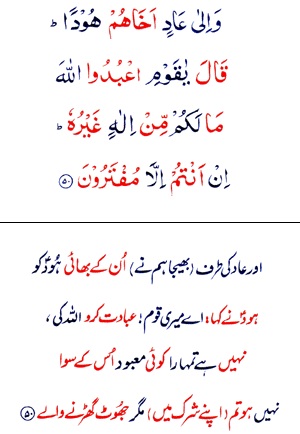 وَاِلٰى عَادٍ اَخَاهُمْ هُوْدًا ؕ
قَالَ يٰقَوْمِ اعْبُدُوا اللّٰهَ
مَا لَكُمْ مِّنْ اِلٰهٍ غَيْرُهٗ ؕ
اِنْ اَنْتُمْ اِلَّا مُفْتَرُوْنَ ۝۵۰
اور عاد کی طرف (بھیجا ہم نے) اُن کے بھائی ہُودؑ کو
ہودؑ نے کہا: اے میری قوم! عبادت کرو اللہ کی ،
نہیں ہے تمہارا کوئی معبود اُس کے سوا
نہیں ہو تم (اپنے شرک میں) مگر جھُوٹ گھڑنے والے ۝۵۰